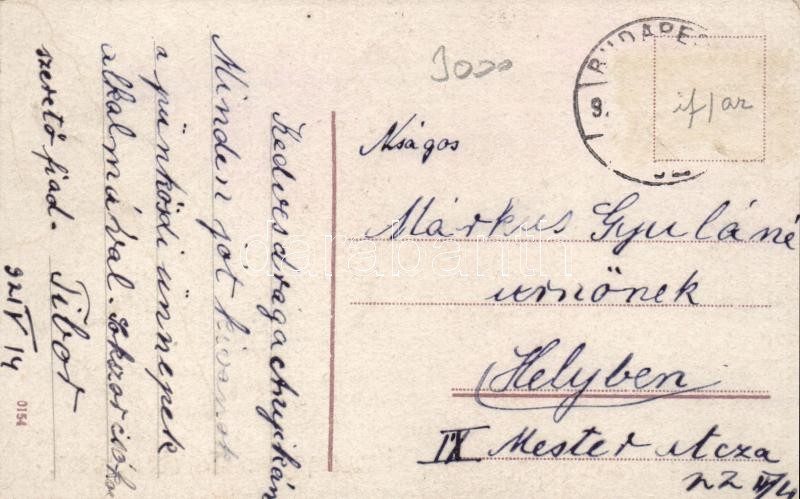 Kedves drága Anyikám
Minden jót kivánok
a pünködi ünnepek
alkalmával. Sokszor csókol
szerető fiad. Tibor
921 IV 14
0154
BUDAPES
9.
if/ar
Nságos
Márkus Gyuláné
urnőnek
Helyben
IX Mester utcza
22
darabanth